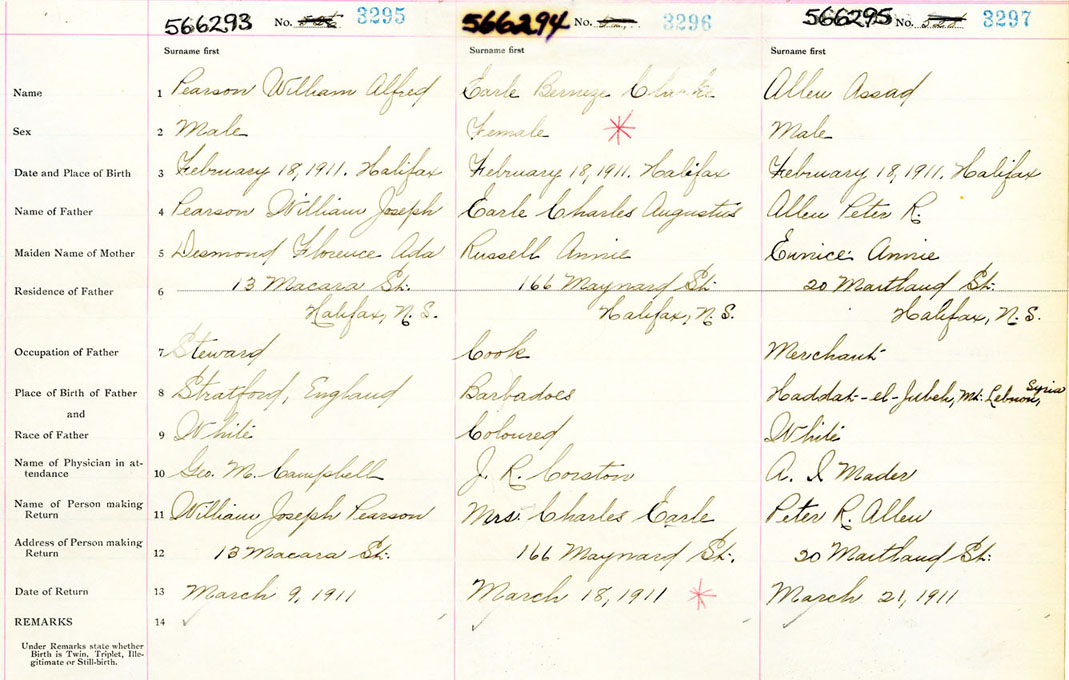 566293 No. 3295 566294 No. 3296 566295 No. 3297
Surname first Surname first Surname first
Name 1 Pearson William Alfred Earle Berneze Allen Assad
Sex 2 Male Female Male
Date and Place of Birth 3 February 18, 1911. Halifax February 18, 1911. Halifax February 18, 1911. Halifax
Name of Father 4 Pearson William Joseph Earle Charles Augustus Allen Peter R.
Maiden Name of Mother 5 Desmond Florence Ada Russell Annie Eunice Annie
Residence of Father 6 13 Macara St. 166 Maynard St. 20 Maitland St.
Halifax, N.S. Halifax, N.S. Halifax, N.S.
Occupation of Father 7 Steward Cook Merchant
Place of Birth of Father 8 Stratford, England Barbadoes Haddat-el-Jubeh, Mt. Lebnon, Syria
and
Race of Father 9 White Coloured White
Name of Physician in at-
tendance 10 Geo. M. Campbell J. R. Corston A. I Mader
Name of Person making
Return 11 William Joseph Pearson Mrs. Charles Earle Peter R. Allen
Address of Person making
Return 12 13 Macara St. 166 Maynard St. 20 Maitland St.
Date of Return 13 March 9, 1911 March 18, 1911 March 21, 1911
REMARKS 14
Under Remarks state whether
Birth is Twin, Triplet, Ille-
gitimate or Still-birth.